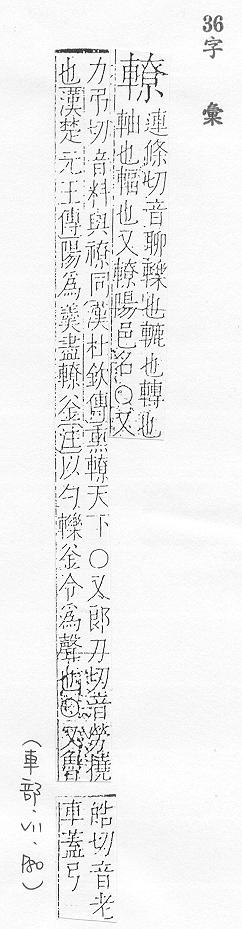 36
字彙
轑
連條切音聊轢也也轉也
軸也幅也又轑陽邑名○又
力弔切音料與同漢杜欽傳熏轑天下○又郎刀切音勞撓
也漢楚元王傳陽為羹盡轑釜注以勺轢釜令為聲也○又魯
皓切音老
車蓋弓
(車部.VII.180)